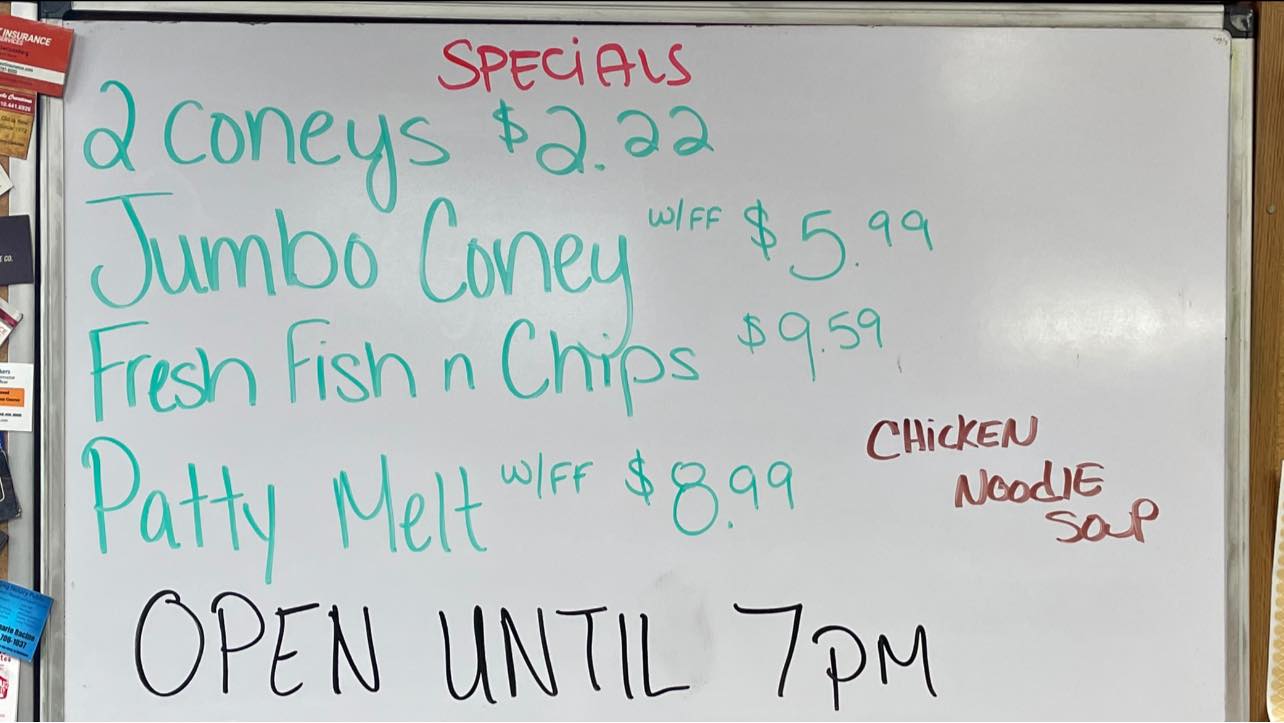 INSURANCE
SPECiALS
2 coneys $2.22
Jumbo Coney w/FF $5.99
Fresh Fish n Chips $9.59
Patty Melt w/FF $8.99
CHiCKEN
NOOdlE
SOUP
OPEN UNTIL 7PM